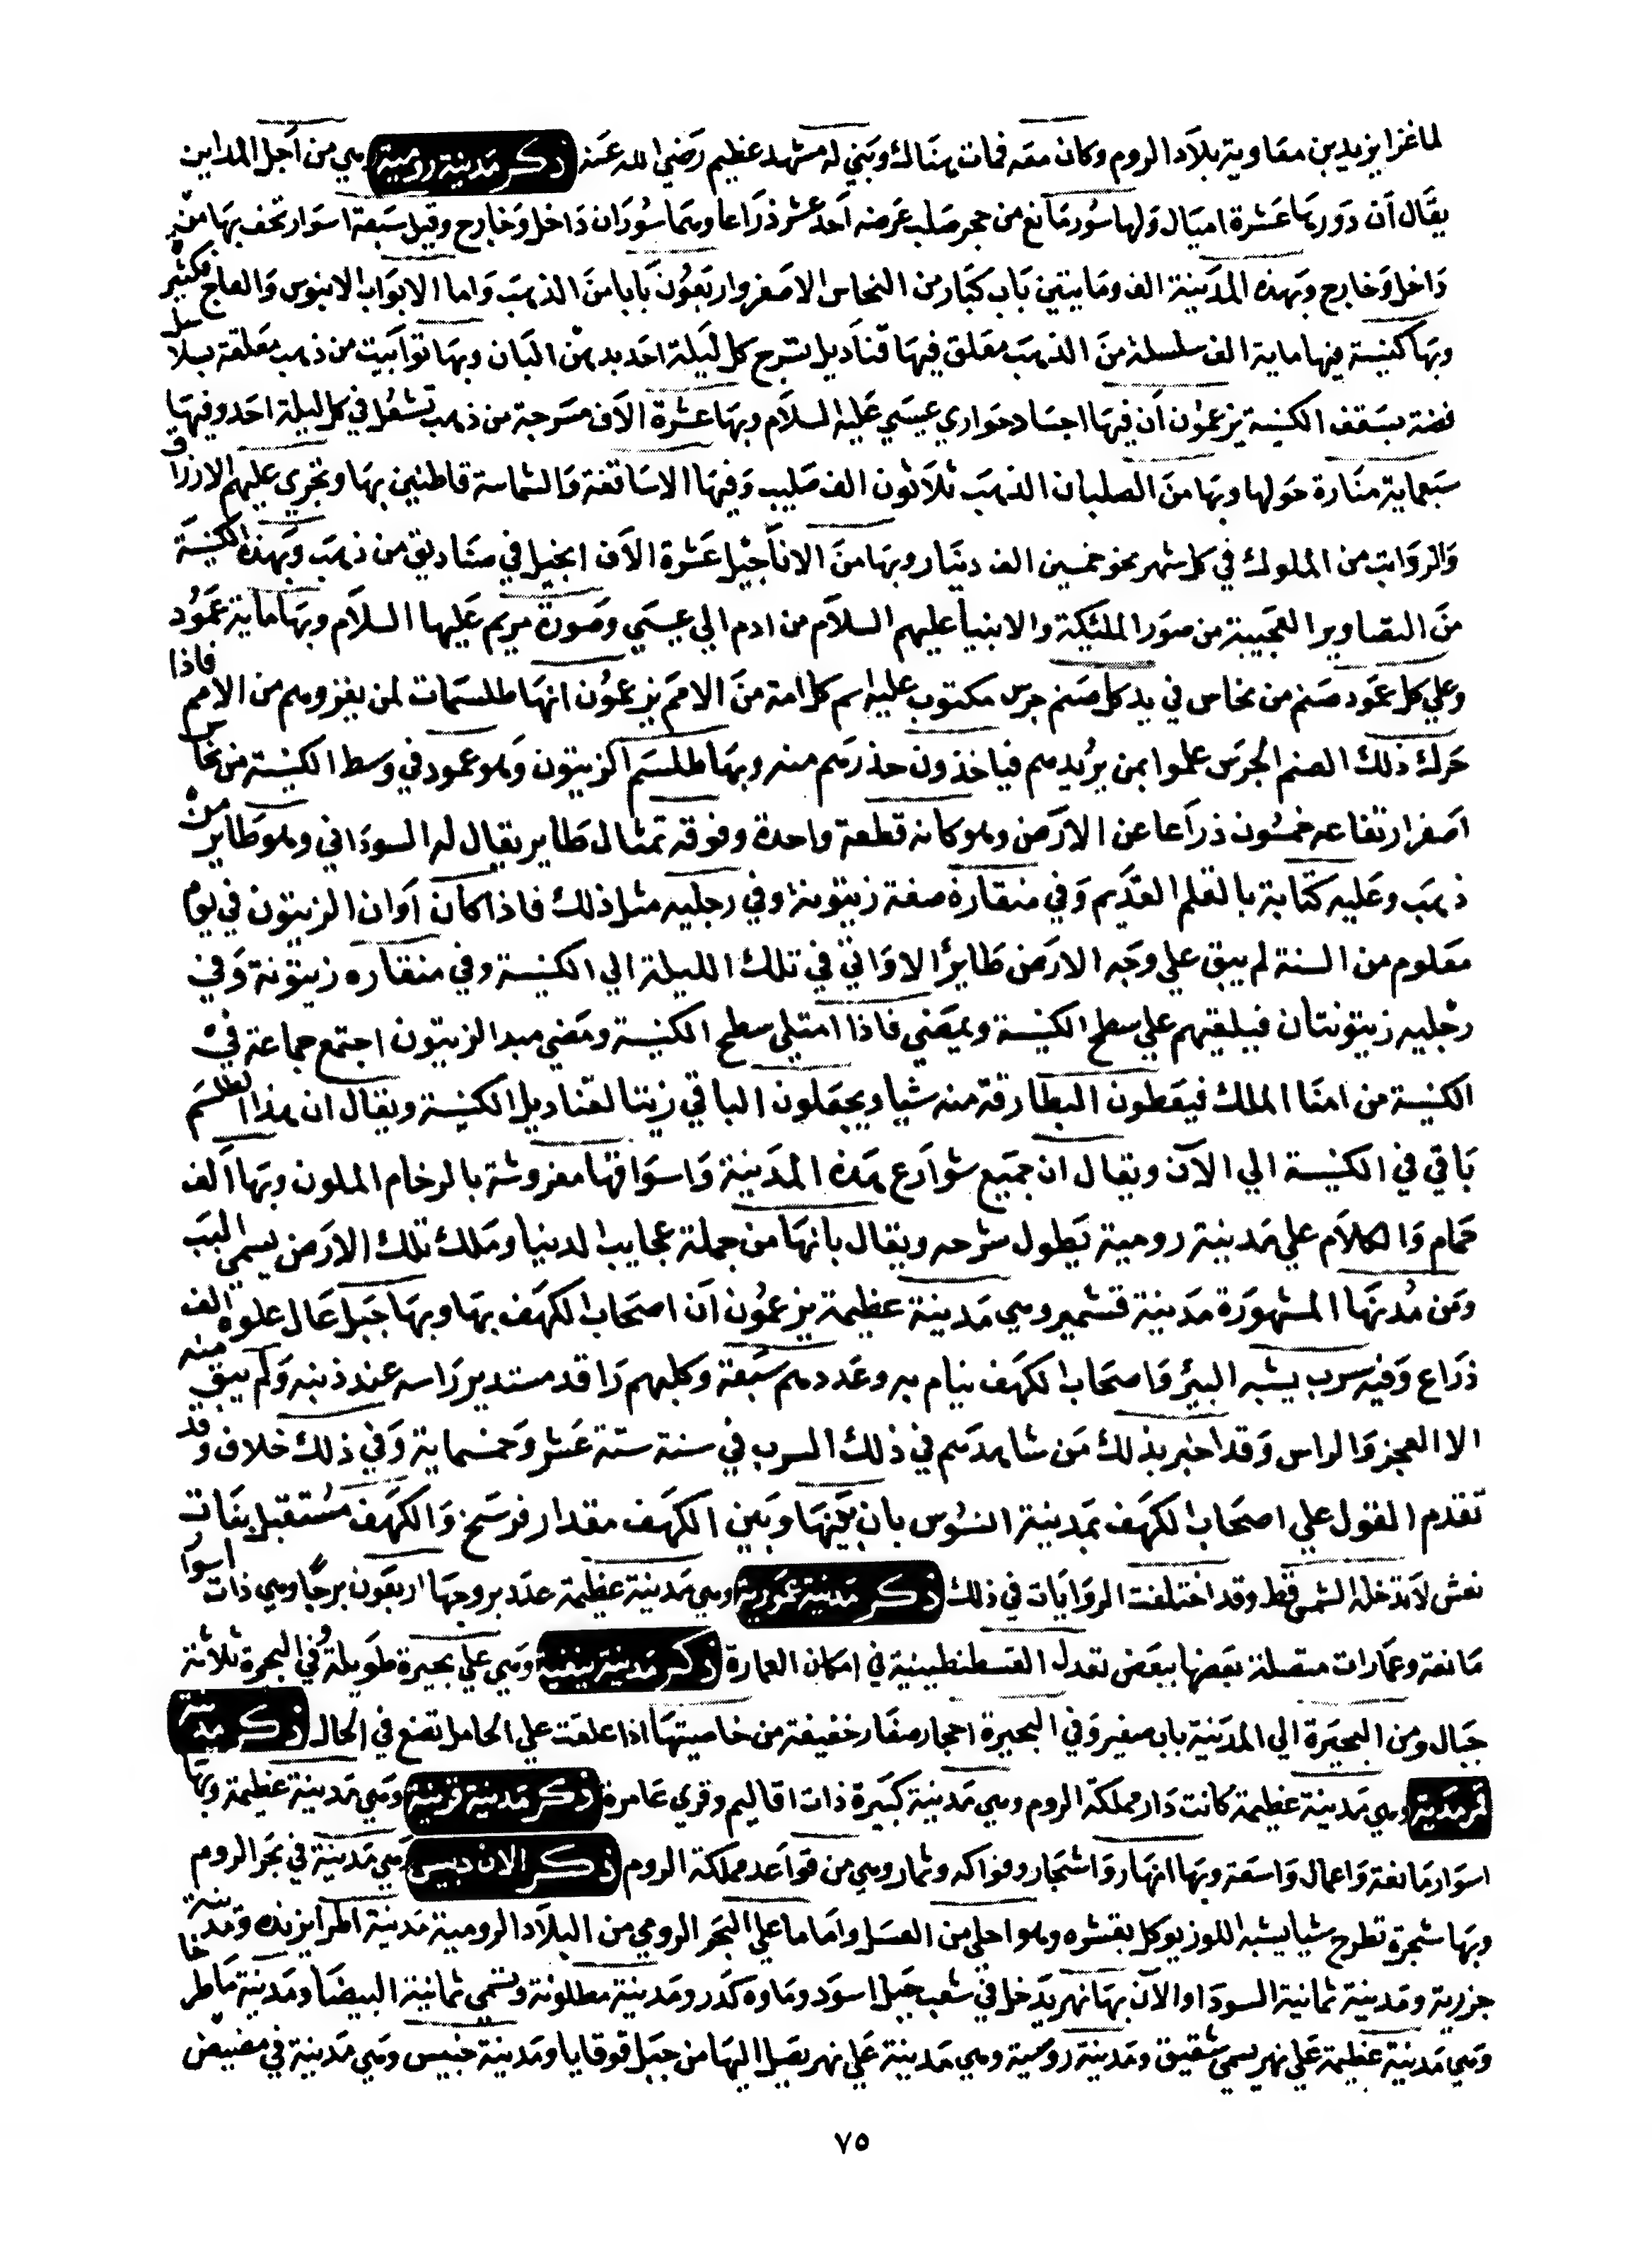 لما غزا يزيد بن معاوية بلاد الروم وكان معه فمات هناك وبني له مشهد عظيم رضي الله عنه ذكر مدينة رومية وهي من أجل المداين
يقال أن دورها عشرة اميال ولها سور مانع من حجر صلب عرضه أحد عشر ذراعا وهما سوران داخل وخارج وقيل سبعة اسوار تحف بها من
داخل وخارج وبهذه المدينة الف ومايتين باب كبار من النحاس الاصفر واربعون بابا من الذهب واما الابواب الابنوس والعاج فكثير
وبها كنيسة فيها ماية الف سلسلة من الذهب معلق فيها قناديل تسرج كل ليلة احد بدهن البان وبها توابيت من ذهب معلقة بسلاسل
فضة بسقف الكنيسة يزعمون أن فيها اجساد حواري عيسي عليه السلام وبها عشرة الاف مسرجة من ذهب تشعل في كل ليلة احد وفيها
سبعماية منارة حولها وبها من الصلبان الذهب ثلاثون الف صليب وفيها الاساقفة والشماسة قاطنين بها وتجري عليهم الارزاق
والرواتب من الملوك في كل شهر نحو خمسين الف دينار وبها من الاناجيل عشرة الاف انجيل في صناديق من ذهب وبهذه الكنيسة
من التصاوير العجيبة من صور المليكة والانبيا عليهم السلام من ادم الي عيسي وصورة مريم عليها السلام وبها ماية عمود
وعلي كل عمود صنم من نحاس في يد كل صنم جرس مكتوب عليه اسم كل امة من الامم يزعمون انها طلسمات لمن يغزوهم من الامم فاذا
حرك ذلك الصنم الجرس علموا بمن يريدهم فياخذون حذرهم منه وبها طلسم الزيتون وهو عمود في وسط الكنيسة من نحاس
اصفر ارتفاعه خمسون ذراعا عن الارض وهو كانه قطعة واحدة وفوقه تمثال طاير يقال له السوداني وهو طاير من
ذهب وعليه كتابة بالقلم القديم وفي منقاره صفة زيتونة وفي رجليه مثل ذلك فاذا كان أوان الزيتون في يوم
معلوم من السنة لم يبق علي وجه الارض طايرا الا واتي في تلك الليلة الي الكنيسة وفي منقاره زيتونة وفي
رجليه زيتونتان فيلقيهم علي سطح الكنيسة ويمضي فاذا امتلي سطح الكنيسة ومضي مبدا الزيتون اجتمع جماعة في
الكنيسة من امنا الملك فيعطون البطارقة منه شيا ويجعلون الباقي زيتا لقناديل الكنيسة ويقال ان هذا الطلسم
باقي في الكنيسة الي الآن ويقال ان جميع شوارع هذه المدينة واسواقها مفروشة بالرخام الملون وبها ألف
حمام والكلام علي مدينة رومية يطول شرحه ويقال بانها من جملة عجايب الدنيا وملك تلك الارض يسمي البب
ومن مدنها المشهورة مدينة قشمير وهي مدينة عظيمة يزعمون أن اصحاب الكهف بها وبها جبل عال علوه الف
ذراع وفيه سرب يشبه البير واصحاب الكهف نيام به وعددهم سبعة وكلبهم راقد مستدير راسه عند ذنبه ولم يبق منه
الا العجز والراس وقد اخبر بذلك من شاهدهم في ذلك السرب في سنة ستة عشر وخمسماية وفي ذلك خلاف وقد
تقدم القول علي اصحاب الكهف بمدينة السوس بان بينها وبين الكهف مقدار فرسخ والكهف مستقبل بنات
نعش لا تدخله الشمس قط وقد اختلفت الروايات في ذلك ذكر مدينة عمورية وهي مدينة عظيمة عدد بروجها اربعون برجا وهي ذات اسوار
مانعة وعمارات متصلة بعضها ببعض تعدل القسطنطينية في امكان العمارة ذكر مدينة نيقية وهي علي بحيرة طويلة وفي البحرة ثلاثة
جبال ومن البحيرة الي المدينة باب صغير وفي البحيرة احجار صغار خفيفة من خاصيتها اذا علقت علي الحامل تضع في الحال ذكر مدينة
وهي مدينة عظيمة كانت دار مملكة الروم وهي مدينة كبيرة ذات اقاليم وقري عامرة ذكر مدينة وهي مدينة عظيمة وبها
اسوار مانعة واعمال واسعة وبها انهار واشجار وفواكه وثمار وهي من قواعد مملكة الروم ذكر وهي مدينة في بحر الروم
وبها شجرة تطرح شيا يشبه اللوز يوكل بقشره وهو احلي من العسل واما ما علي البحر الرومي من البلاد الرومية مدينة اطرابزنده ومدينة
جزرية ومدينة ثمانية السودا والآن بها نهر يدخل في شعب جبل اسود وماوه كدر ومدينة مطلونة وتسمي ثمانية البيضا ومدينة ماطر
وهي مدينة عظيمة علي نهر يسمي شقيق ومدينة روسية وهي مدينة علي نهر يصل اليها من جبل قوقايا ومدينة خبيس وهي مدينة في مغيض
٧٥